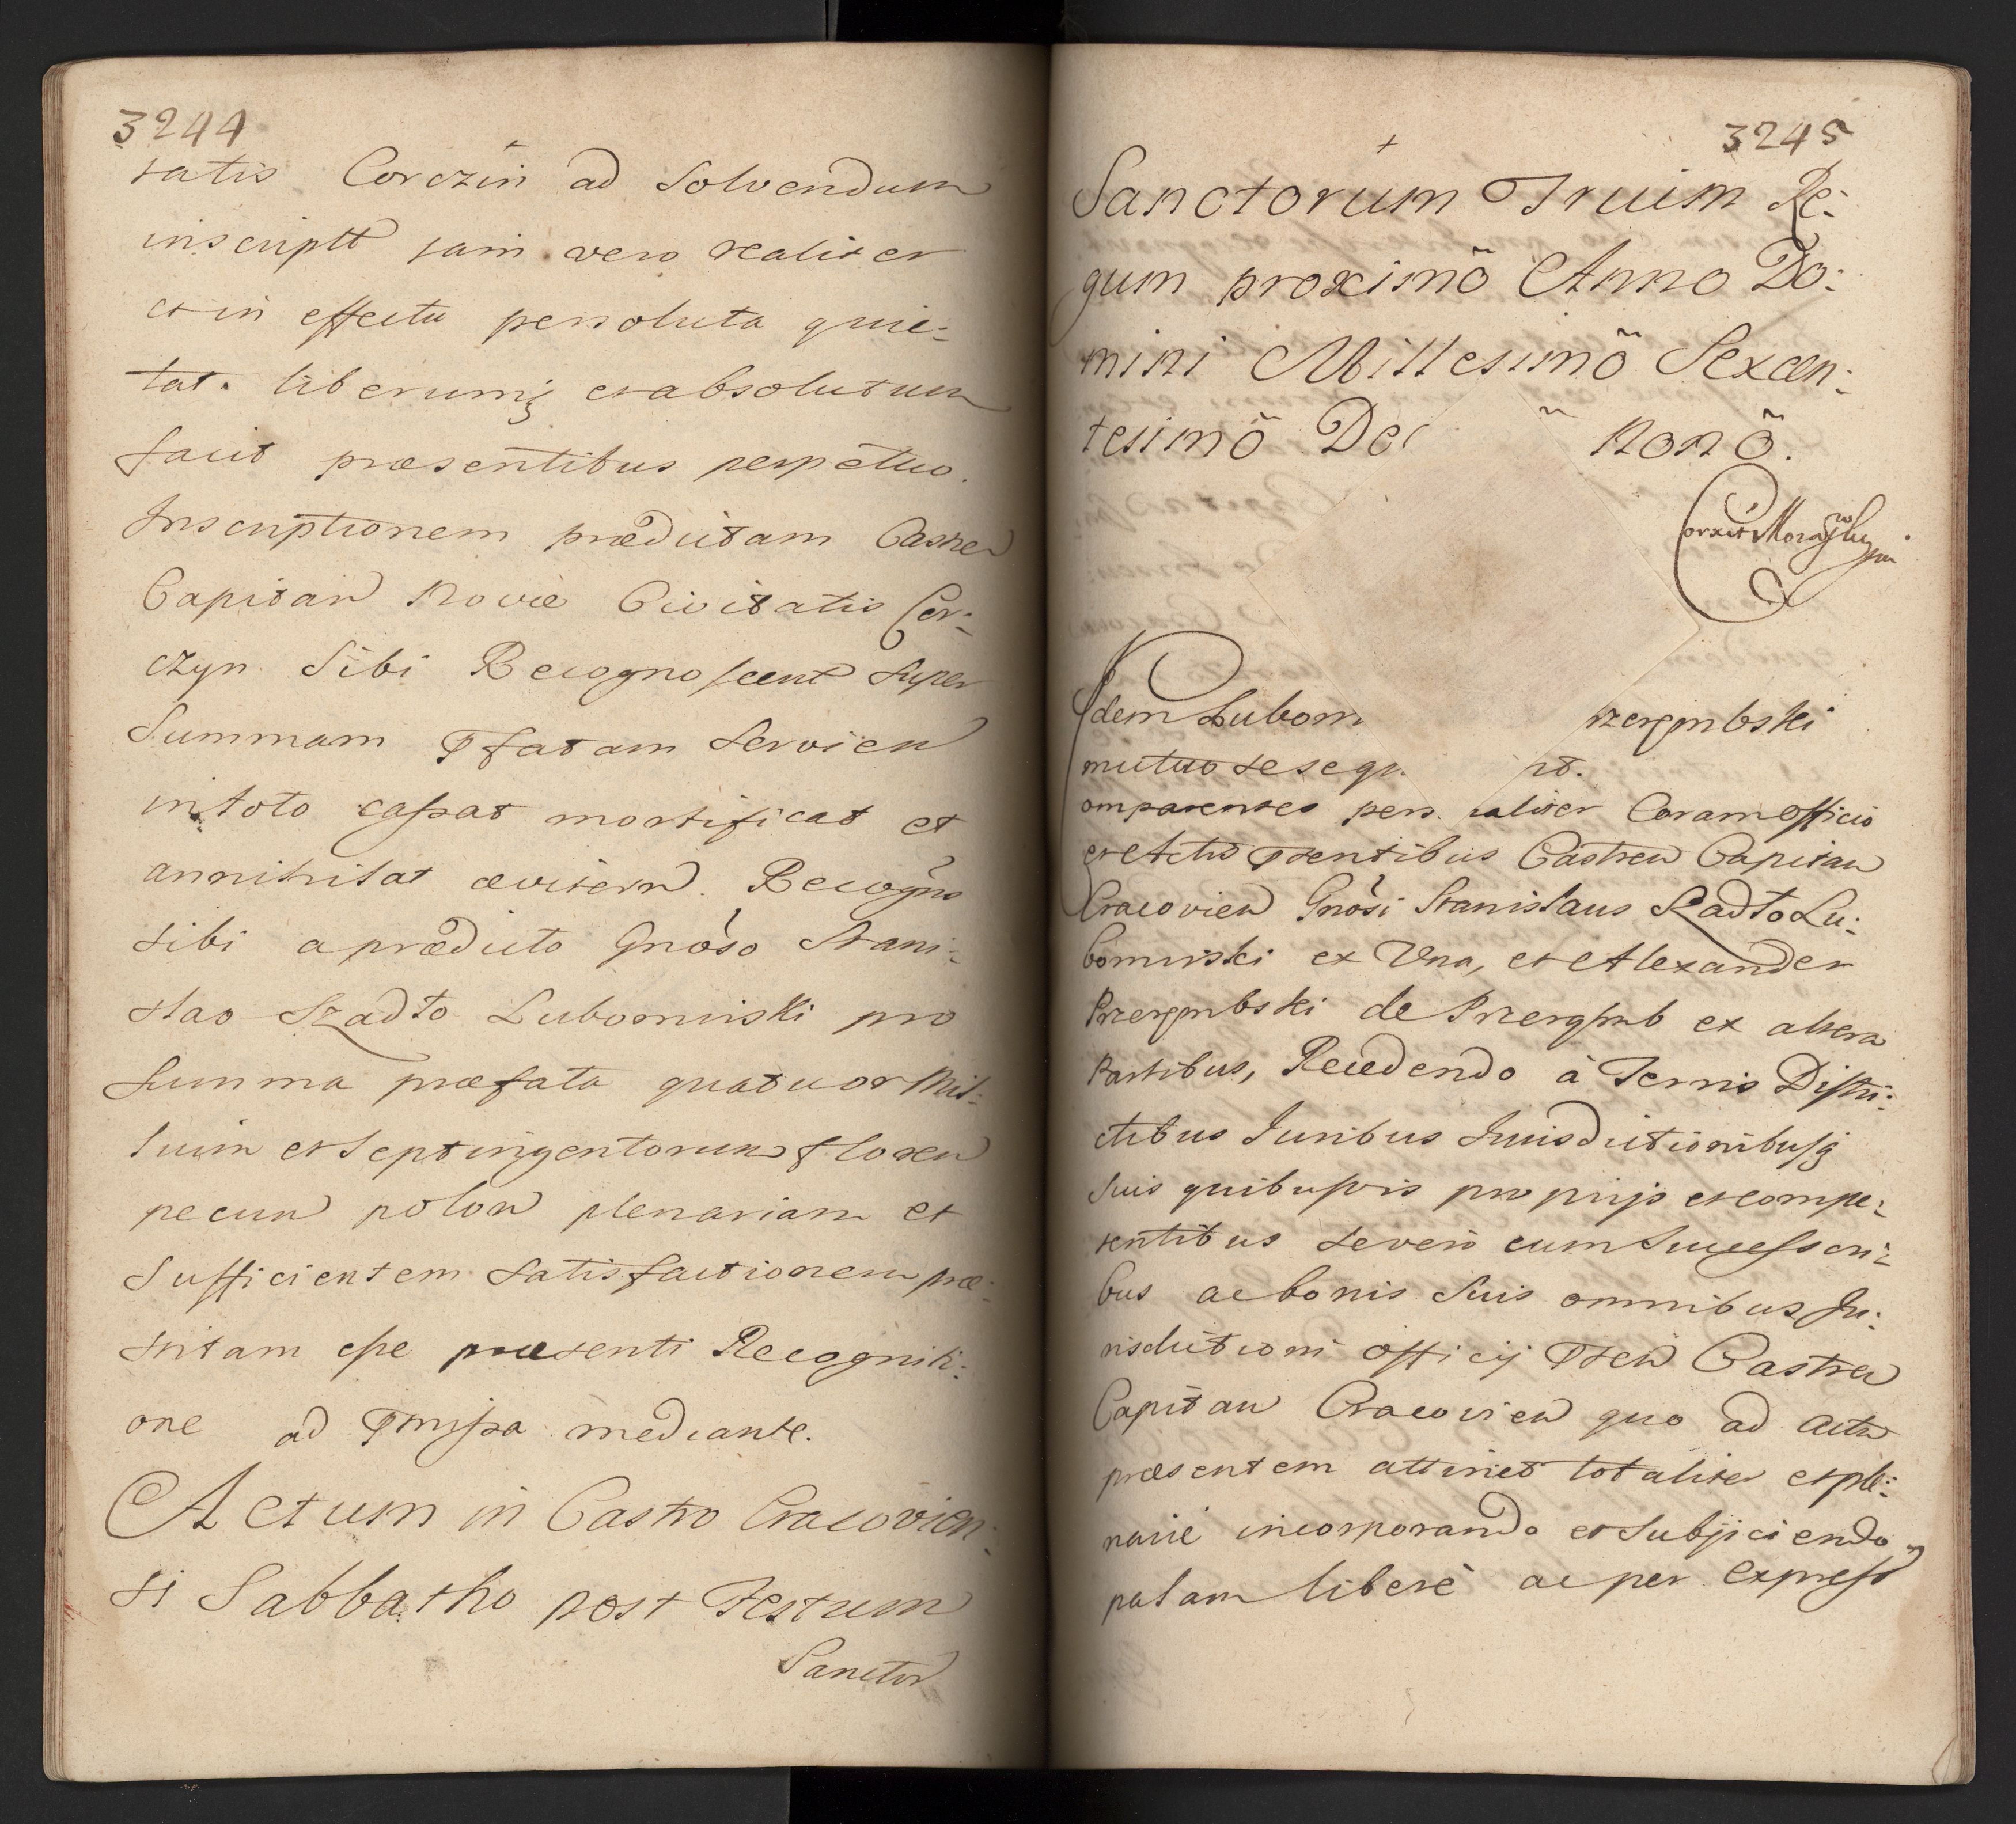 3244
tatis Corczin ad Solvendum
inscriptt jam vero realiter
et in effectu persoluta quie:
tat. liberumq et absolutum
facit præsentibus perpetuo.
Inscriptionem prædictam Castren
Capitan Novæ Civitatis Cor:
czyn Sibi Recognoscent Super
Summam Pfatam Servien
in toto cassat mortificat et
annihilat ævitern. Recogno
sibi a prædicto Gnoso Stani:
slao Szadło Lubomirski pro
Summa præfata quatuor Mil:
lium et Septingentorum floren
pecun polon plenariam et
Sufficientem satisfactionem præ:
stitam esse præsenti Recogniti:
one ad Pmissa mediante.
Actum in Castro Cracovien:
si Sabbatho post Festum
Sanctor
3245
Sanctorum Trium Re:
gum proximo Anno Do:
mini Millesimo Sexcen:
tesimo Dec nono.
Idem Lubom rzerembski
mutuo sese qu. nt.
omparentes pers. aliter Coram officio
et Actis Psentibus Castren Capitan
Cracovien Gnosi Stanislaus Szadło Lu:
bomirski ex Una, et Alexander
Przerembski de Przeremb ex altera
Partibus, Recedendo à Terris Distri:
ctibus Juribus Jurisdictionibusq
suis quibusvis proprijs et compe:
tentibus se vero cum Successori:
bus ac bonis Suis omnibus Ju:
risdictioni officij Psen Castren
Capitan Cracovien quo ad actu
præsentem attinet totaliter et ple:
narie incorporando et Subjiciendo
palam libere ac per express